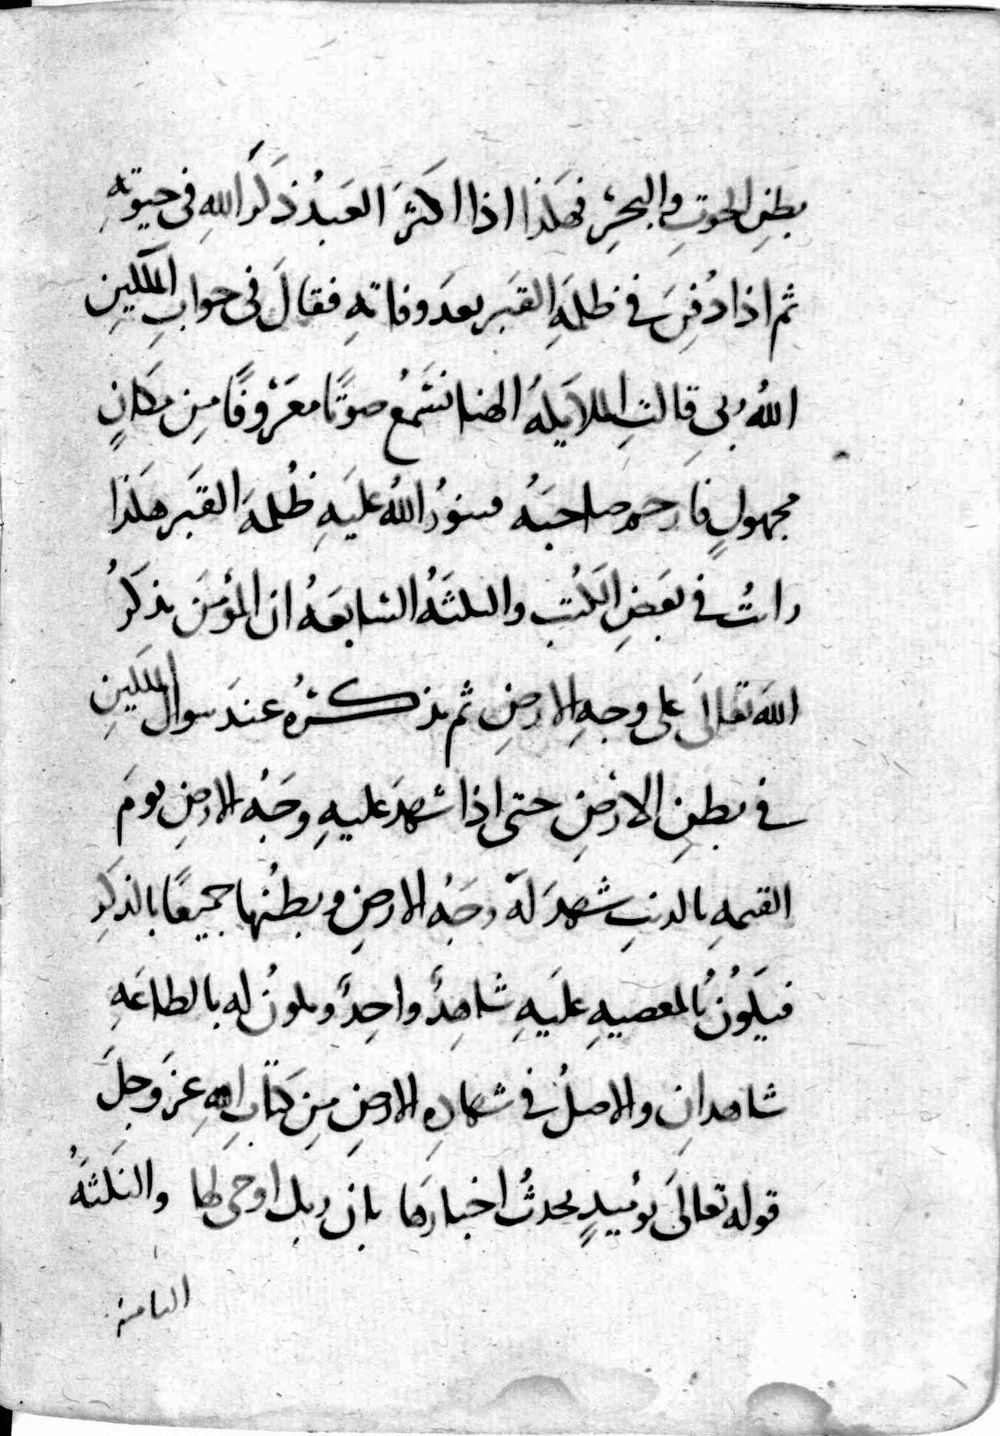 بطنِ الحوتِ والبحرِ فهكذا اذا اكثرَ العَبدُ ذكرَ اللهِ في حيوتهِ
ثم اذا دُفِنَ في ظلمةِ القبر بعدَ وفاتهِ فقالَ في جوابِ الملكينِ
اللهُ ربي قالتِ الملايكةُ الهنا نسمعُ صوتًا معرُوفًا مِن مكانٍ
مجهولٍ فارحم صاحبَهُ فينورُ اللهُ عليهِ ظُلمةَ القبرِ هكذا
رايتُ في بعضِ الكتبِ والنكتَةُ السابعَةُ ان المؤمنَ يذكرُ
اللهَ تعالىَ على وجهِ الارضِ ثم يذكرُه عندَ سوال الملكينِ
في بطنِ الارضِ حتى اذا شهدَ عليهِ وجهُ الارضِ يومَ
القيمهِ بالذنبِ شهدَ لهُ وجهُ الارضِ وبطنُها جميعًا بالذكرِ
فيكونُ بالمعصيهِ عليَهِ شاهدٌ واحِدٌ ويكونُ له بالطاعَهِ
شاهدانِ والاصلُ في شهادهِ الارضِ مِن كتابِ اللهِ عزَ وجلَ
قوله تعالىَ يومئيذٍ تحدثُ اخبارَها بان ربك اوحى لها والنكتةُ
الثامنه